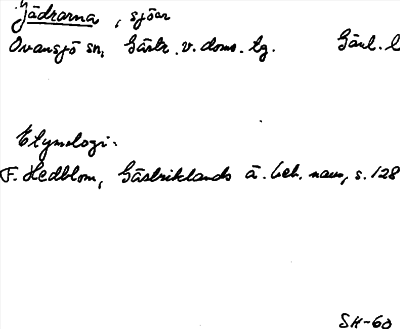 Jädrarna, sjöar
Ovansjö sn, Gästr. v. doms. tg. Gävl. l
Etymologi:
F. Hedblom, Gästriklands ä. beb. namn, s. 128
SH-60